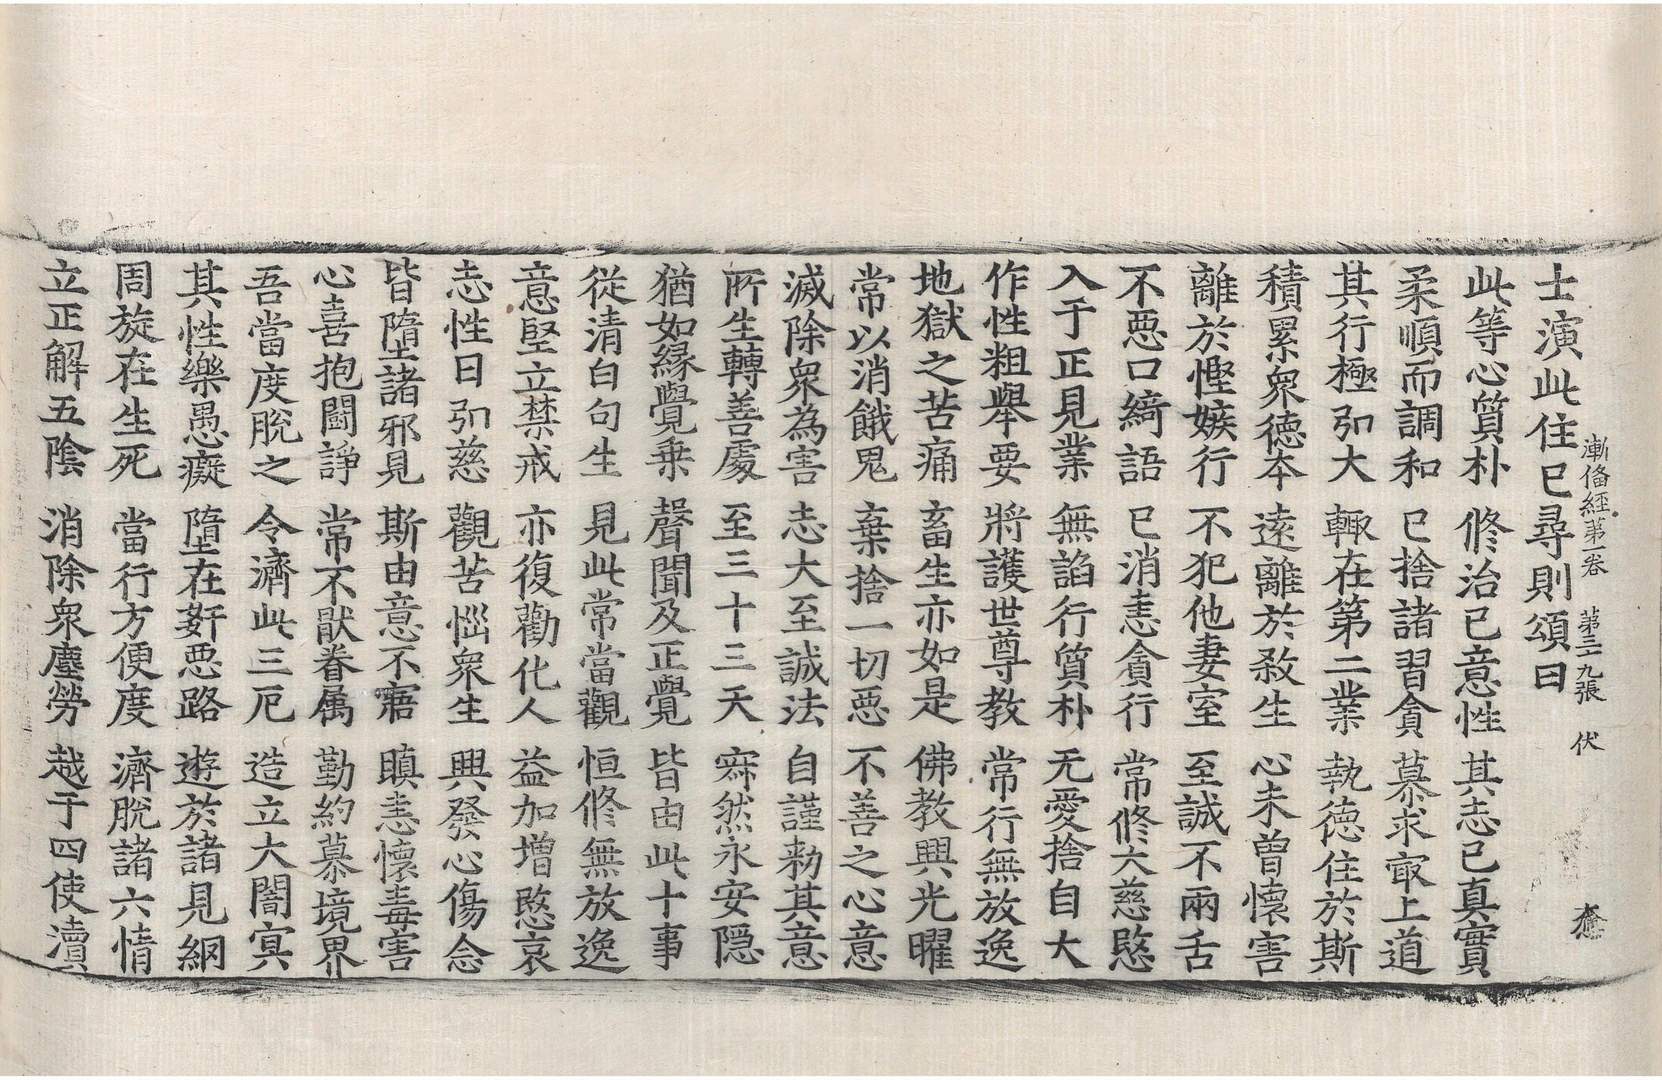 漸俻經第一卷　第三十九張　伏
士演此住已尋則頌曰
此等心質朴　修治已意性　其志已真實
柔順而調和　已捨諸習貪　慕求㝡上道
其行極弘大　輙在第二業　執德住於斯
積累衆德本　遠離於殺生　心未曾懷害
離於慳嫉行　不犯他妻室　至誠不兩舌
不惡口綺語　已消恚貪行　常修大慈愍
入于正見業　無諂行質朴　无愛捨自大
作性粗舉要　將護世尊教　常行無放逸
地獄之苦痛　畜生亦如是　佛教興光曜
常以消餓鬼　棄捨一切惡　不善之心意
滅除衆為害　志大至誠法　自謹勑其意
所生轉善處　至三十三天　寂然永安隱
猶如緣覺乗　聲聞及正覺　皆由此十事
從清白句生　見此常當觀　恒修無放逸
意堅立禁戒　亦復勸化人　益加增愍哀
志性日弘慈　觀苦惱衆生　興發心傷念
皆墮諸邪見　斯由意不寤　瞋恚懷毒害
心喜抱鬪諍　常不猒眷属　勤約慕境界
吾當度脫之　令濟此三厄　造立大闇㝠
其性樂愚癡　墮在姧惡路　遊於諸見網
周旋在生死　當行方便度　濟脫諸六情
立正解五陰　消除衆塵勞　越于四使瀆